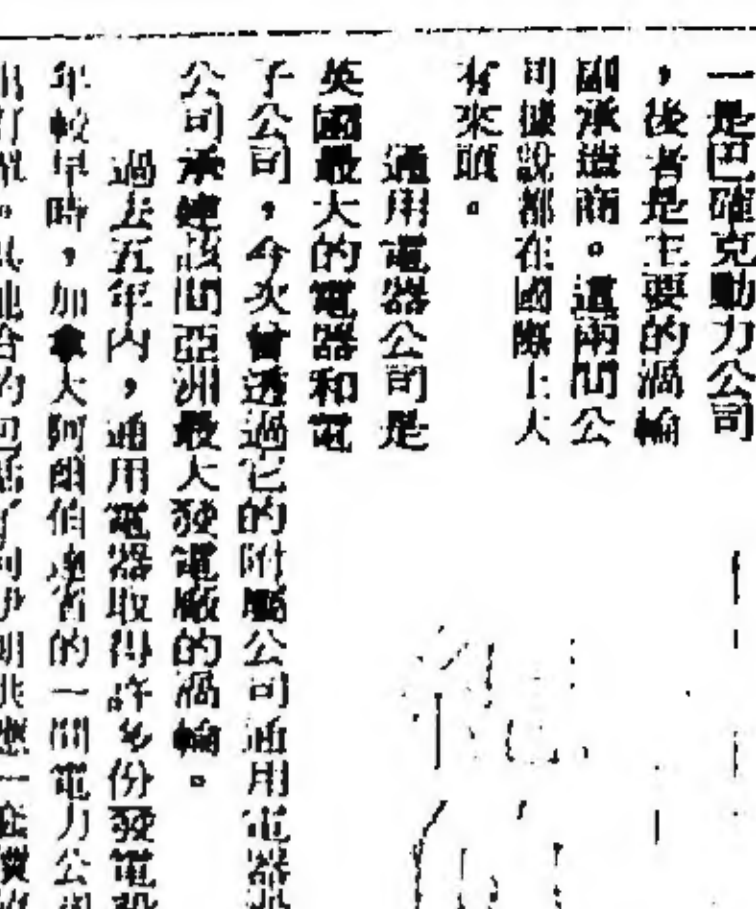 一是巴確克動力公司
，後者是主要的渦輪
副承造商。這兩間公
司據說都在國際上大
有來頭。
通用電器公司是
英國最大的電器和電
子公司，今次曾透過它的附屬公司通用電器
公司承建該間亞洲最大發電廠的渦輪。
過去五年內，通用電器取得許多份發電
年較早時，加拿大阿爾伯達省的一間電力公司